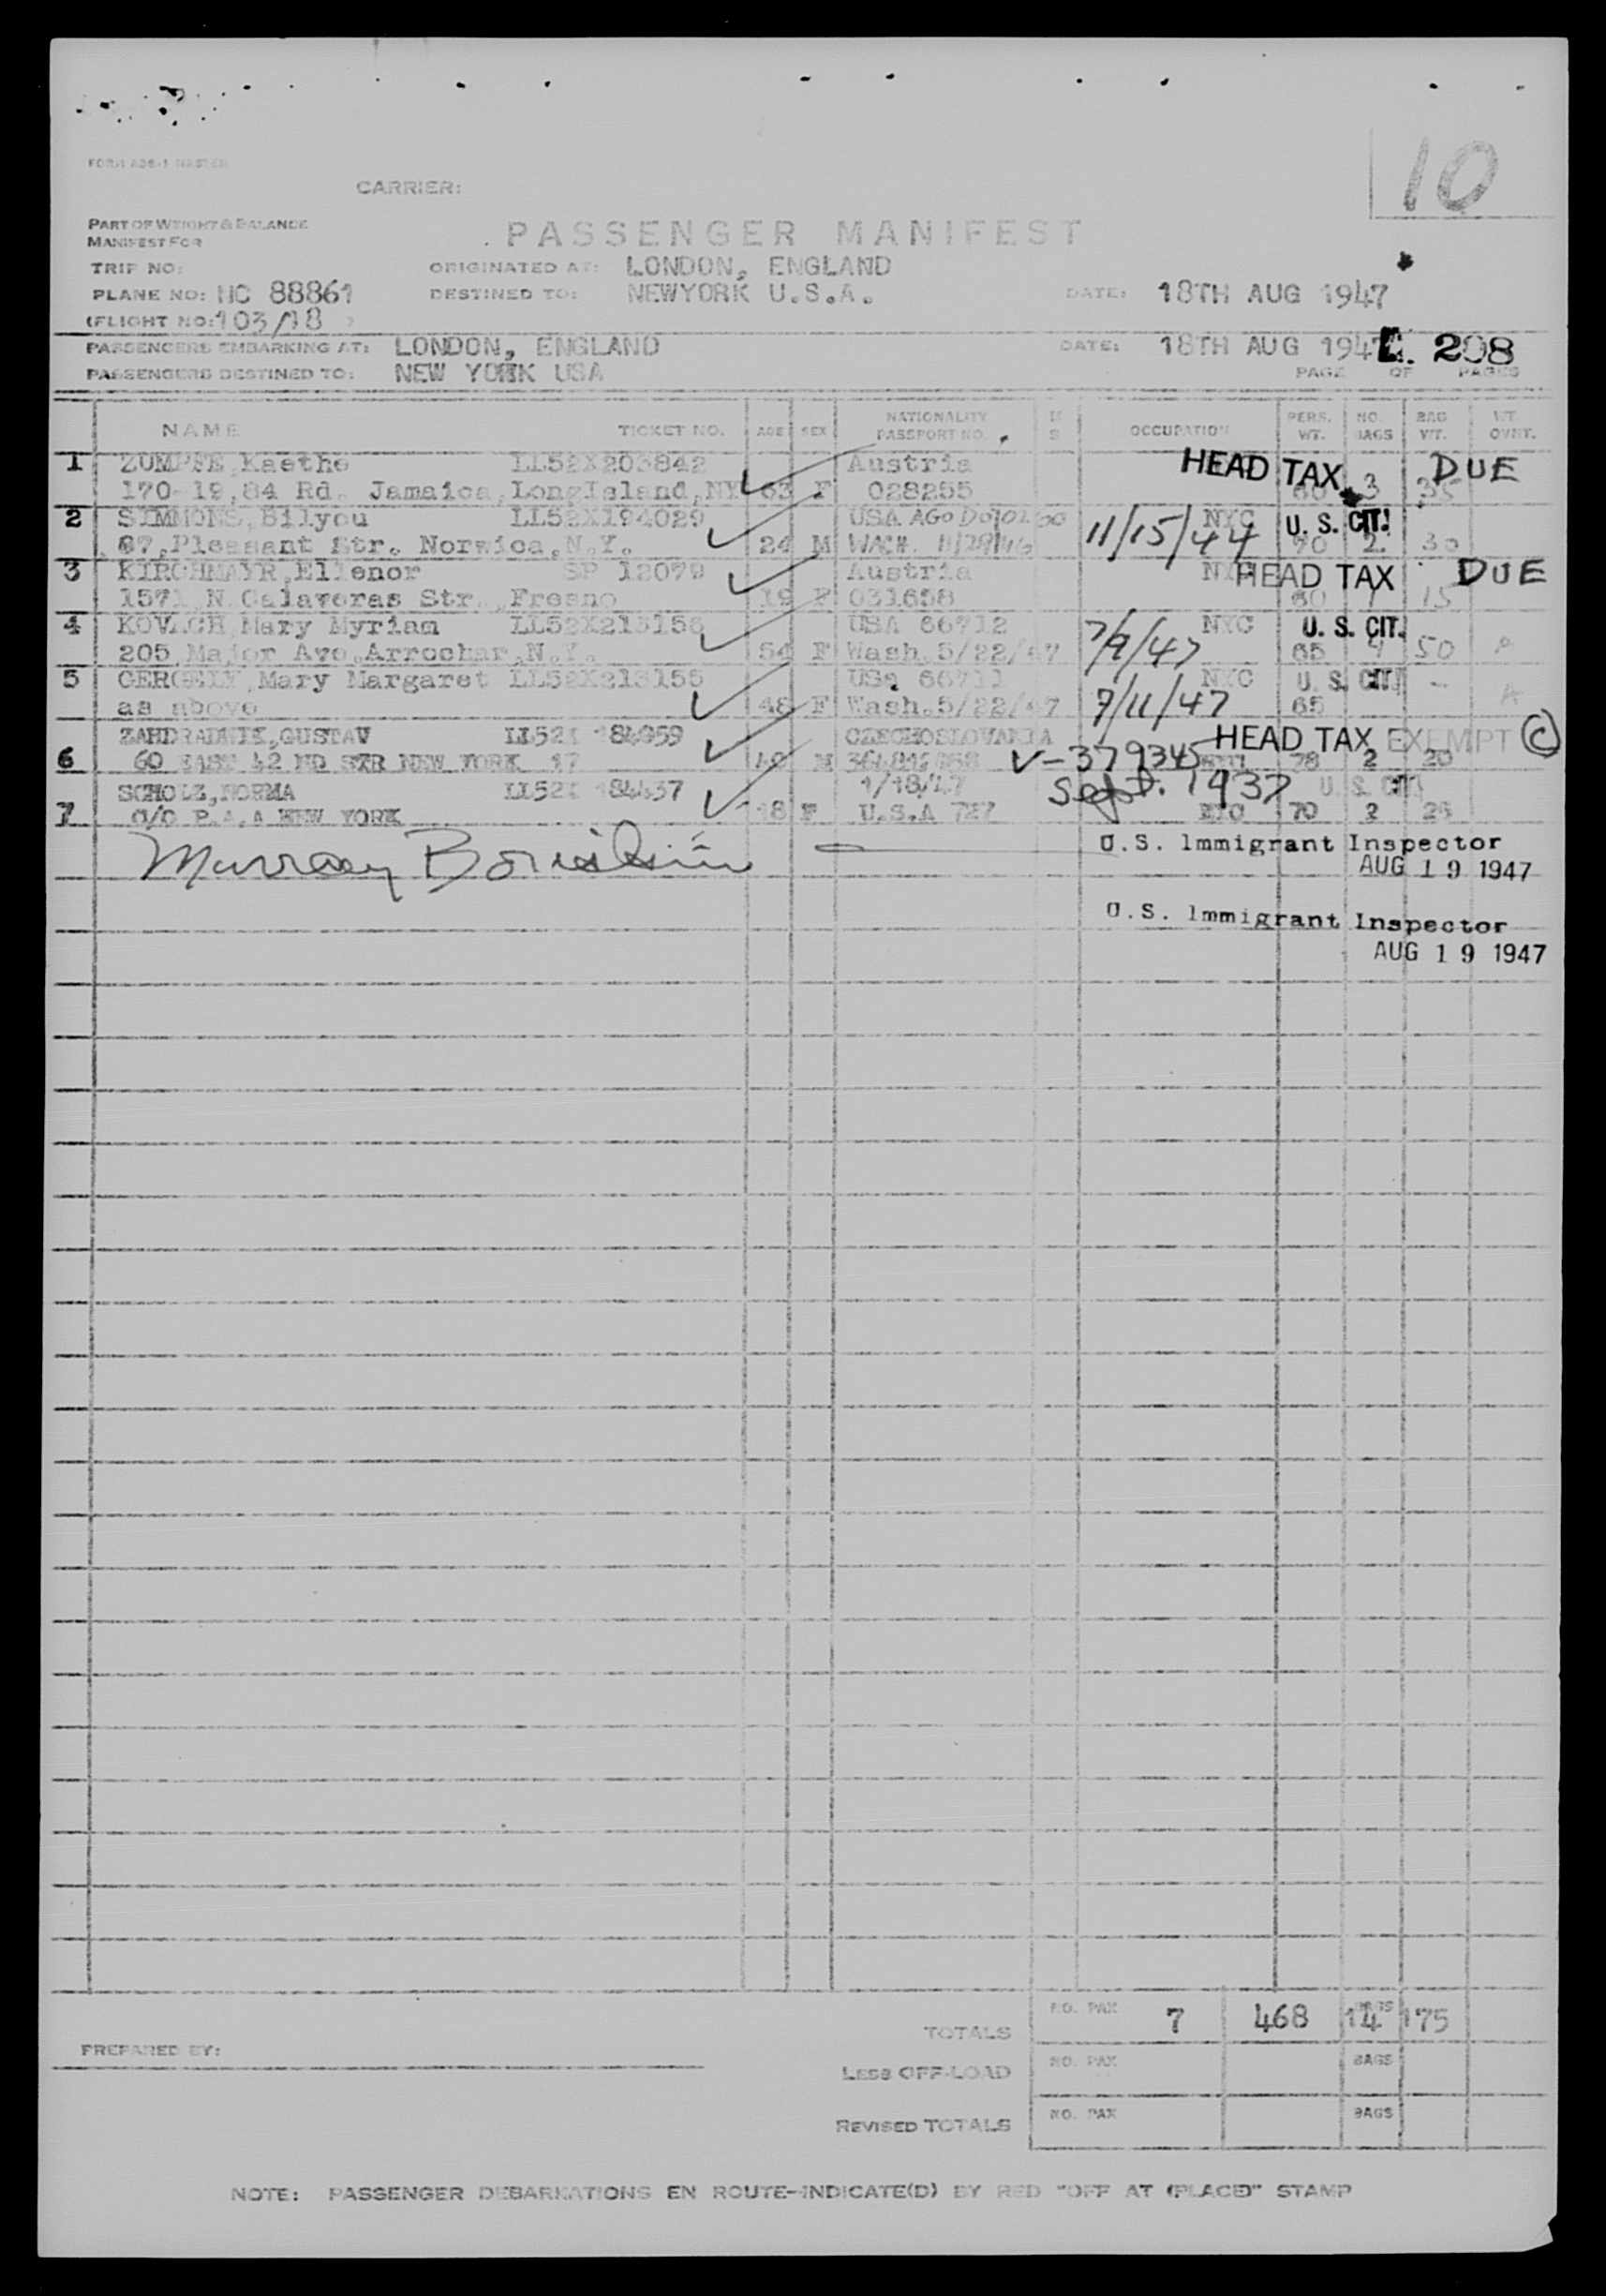 10
CARRIER:
PART OF WEIGHT & BALANCE
MANIFEST FOR
PASSENGER MANIFEST
TRIP NO:
ORIGINATED AT: LONDON, ENGLAND
PLANE NO: NC 88861 DESTINED TO: NEWYORK U.S.A. DATE: 18TH AUG 1947
(FLIGHT NO: 103/18 )
PASSENGERS EMBARKING AT: LONDON, ENGLAND DATE: 18TH AUG 1947 208
PASSENGERS DESTINED TO: NEW YORK USA PAGE OF PAGES
NAME TICKET NO. AGE SEX NATIONALITY PASSPORT NO. OCCUPATION PERS. WT. NO. BAGS BAG WT. WT. OVWT.
1 ZUMPFE, Kaethe LL52X203842 Austria HEAD TAX DUE
170-19, 84 Rd. Jamaica, LongIsland, NY 63 F 028255 60 3 35
2 SIMMONS, Bilyou LL52X194029 USA AGO NYC U. S. CIT.
67, Pleasant Str. Norwica, N.Y. 24 M WASH. 11/29/46 11/15/44 70 2 30
3 KIRCHMAYR, Ellenor SP 12079 Austria NYC HEAD TAX DUE
1571 N. Calaveras Str., Fresno 19 F 031658 60 1 15
4 KOVACH, Mary Myriam LL52X213156 USA 66712 NYC U. S. CIT.
205 Major Ave. Arrochar, N.Y. 54 F Wash. 5/22/47 7/9/47 65 4 50 A
5 GERGELY, Mary Margaret LL52X213155 USA 66711 NYC U. S. CIT.
as above 48 F Wash. 5/22/47 7/11/47 65 - A
ZAHDRADNIK, GUSTAV LL52X 184959 CZECHOSLOVAKIA HEAD TAX EXEMPT C
6 60 EAST 42 ND STR NEW YORK 17 49 M V-379345 78 2 20
SCHOLZ, NORMA LL52X 184437 1/18/47 Sept. 1937 U. S. CIT.
7 C/O P.A.A NEW YORK 18 F U.S.A 727 NYC 70 2 25
Murray
U.S. Immigrant Inspector
AUG 19 1947
U.S. Immigrant Inspector
AUG 19 1947
TOTALS NO. PAX 7 468 BAGS 14 175
PREPARED BY:
LESS OFF-LOAD NO. PAX BAGS
REVISED TOTALS NO. PAX BAGS
NOTE: PASSENGER DEBARKATIONS EN ROUTE-INDICATE(D) BY RED "OFF AT (PLACE)" STAMP